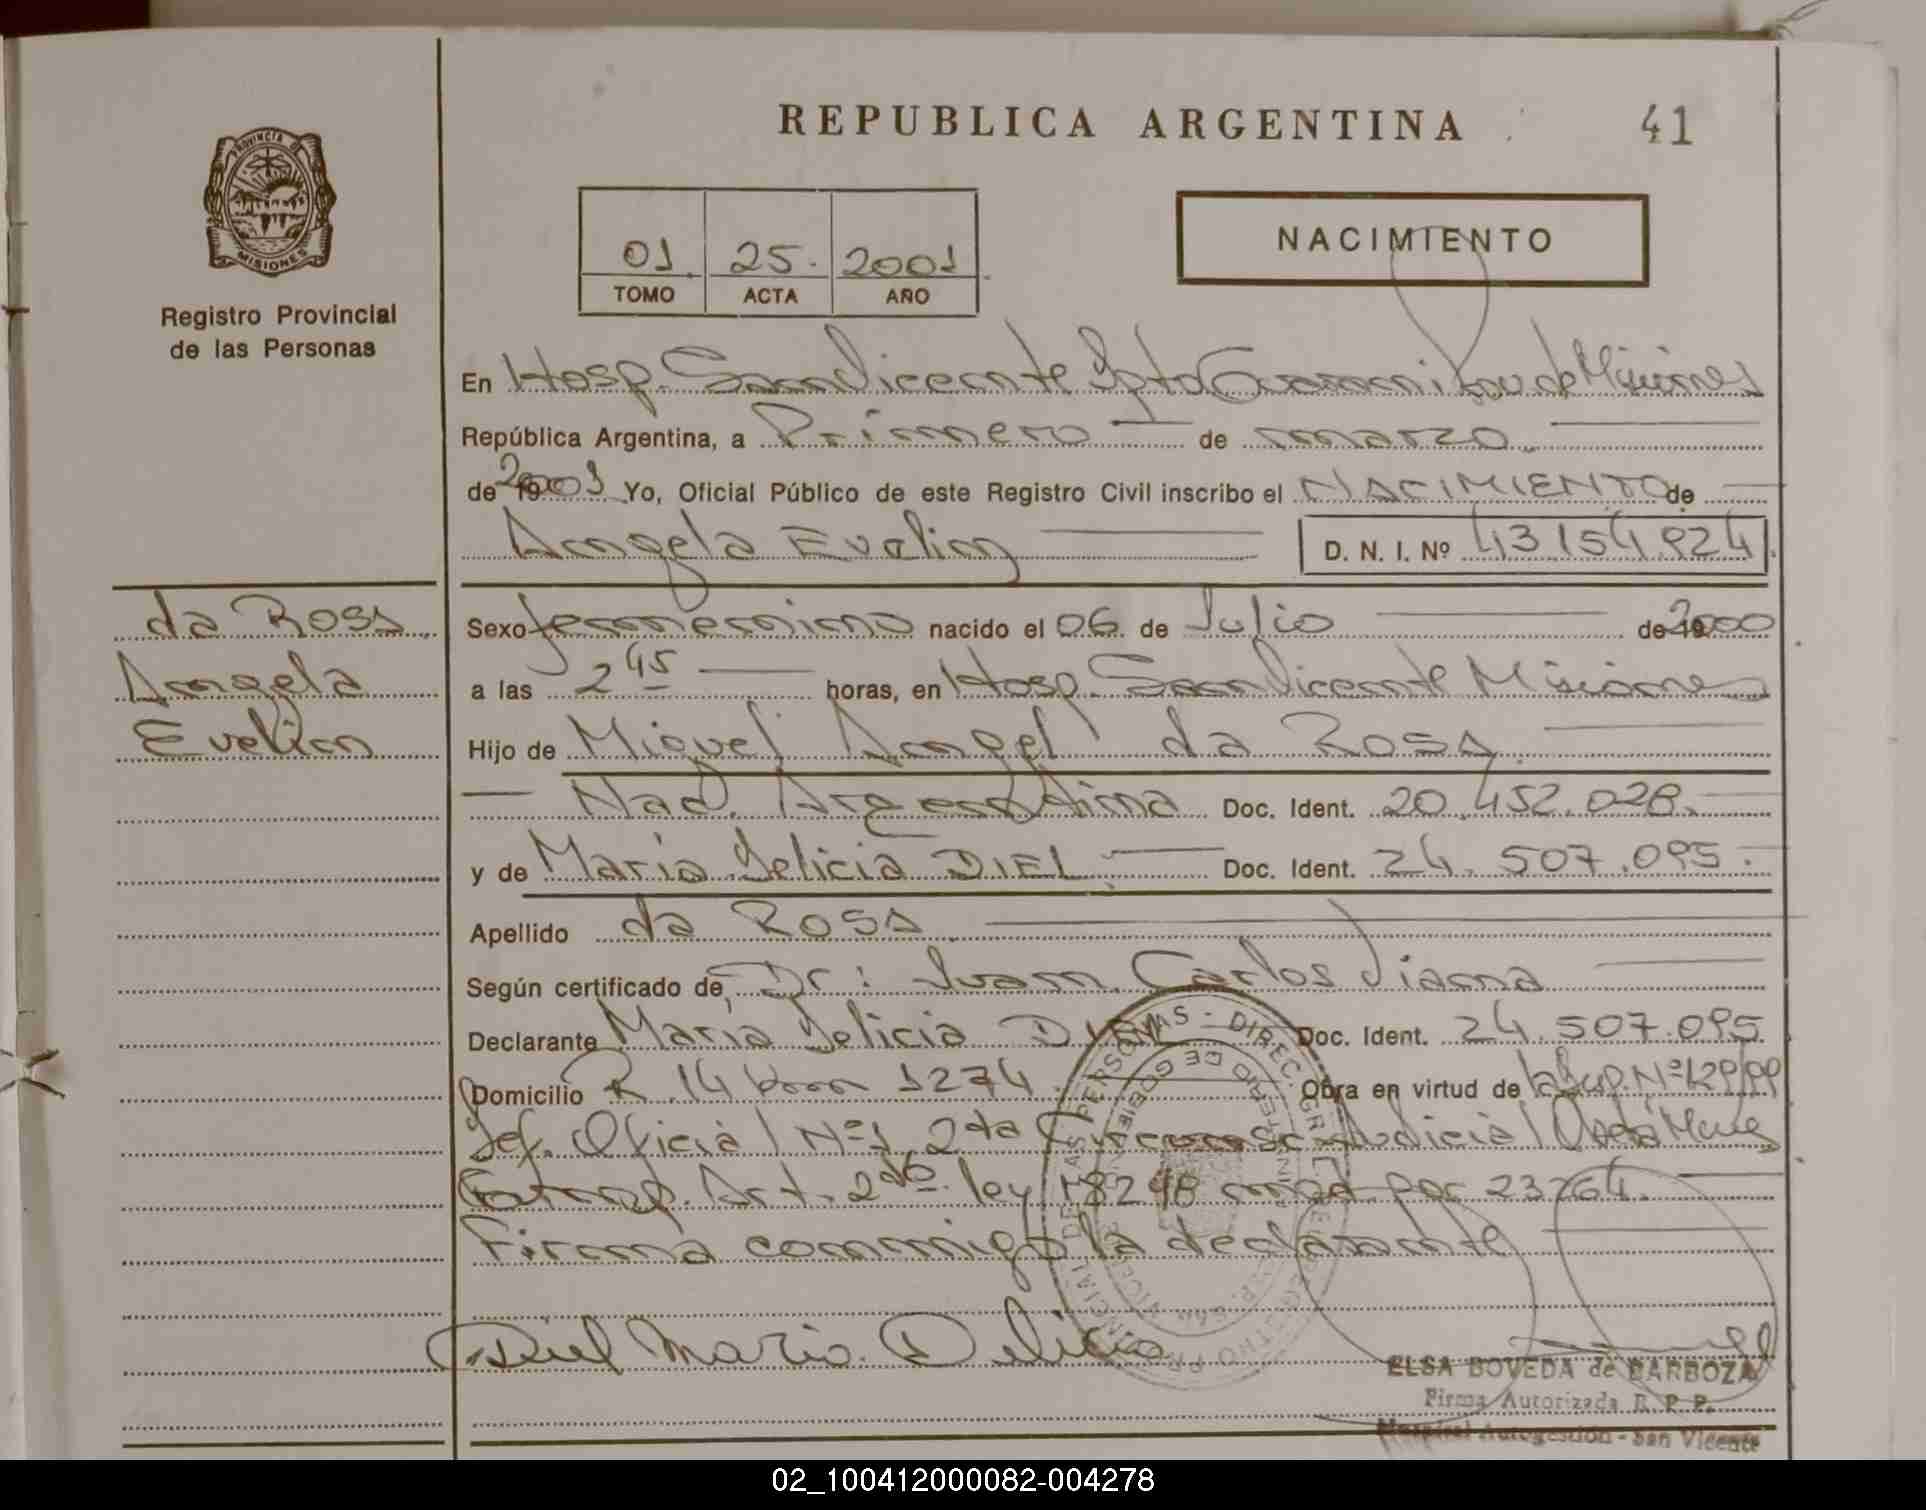 REPUBLICA ARGENTINA
41
PROVINCIA DE
MISIONES
Registro Provincial
de las Personas
01 25. 2001
TOMO ACTA AÑO
NACIMIENTO
En Hosp. San Vicente Dpto Guarani Prov de Misiones
República Argentina, a Primero de marzo
de 2001 Yo, Oficial Público de este Registro Civil inscribo el NACIMIENTO de
Angela Evelin
D. N. I. Nº 43154924
da Rosa
Angela
Evelin
Sexo femenino nacido el 06 de Julio de 2000
a las 2 45 horas, en Hosp. San Vicente Misiones
Hijo de Miguel Angel da Rosa
Nac. Argentina Doc. Ident. 20.452.028.
y de María Delicia DIEL Doc. Ident. 24.507.095.
Apellido da Rosa
Según certificado de Dr: Juan Carlos Viana
Declarante María Delicia DIEL Doc. Ident. 24.507.095
Domicilio R. 14 Km 1274. Obra en virtud de la Disp. Nº 129/99
Def. Oficial Nº1 2da Circunsc. Judicial Oberá Mnes
Art. 2do. ley 18248 mod por 23264.
Firma conmigo la declarante
Diel Maria Delicia
ELSA BOVEDA de BARBOZA
Firma Autorizada R. P. P.
Hospital Autogestión - San Vicente
02_100412000082-004278